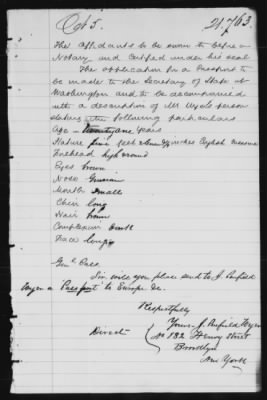 Oct 5. 21.763
The Affidavits to be sworn to before a
Notary and Certified under his seal
The application for a Passport to
be made to the Secretary of State at
Washington and to be accompanied
with a description of Mr person
stating the following particulars
Age – twenty one years
Stature five feet inches English measure
Forehead high round
Eyes brown
Nose Grecian
Mouth small
Chin long
Hair brown
Complexion dark
Face long
Genl Pass
Sir will you please send to J. Penfield
a Passport to Europe &c.
Respectfully
Yours J. Penfield
Direct No 182 Henry Street
Brooklyn
New York